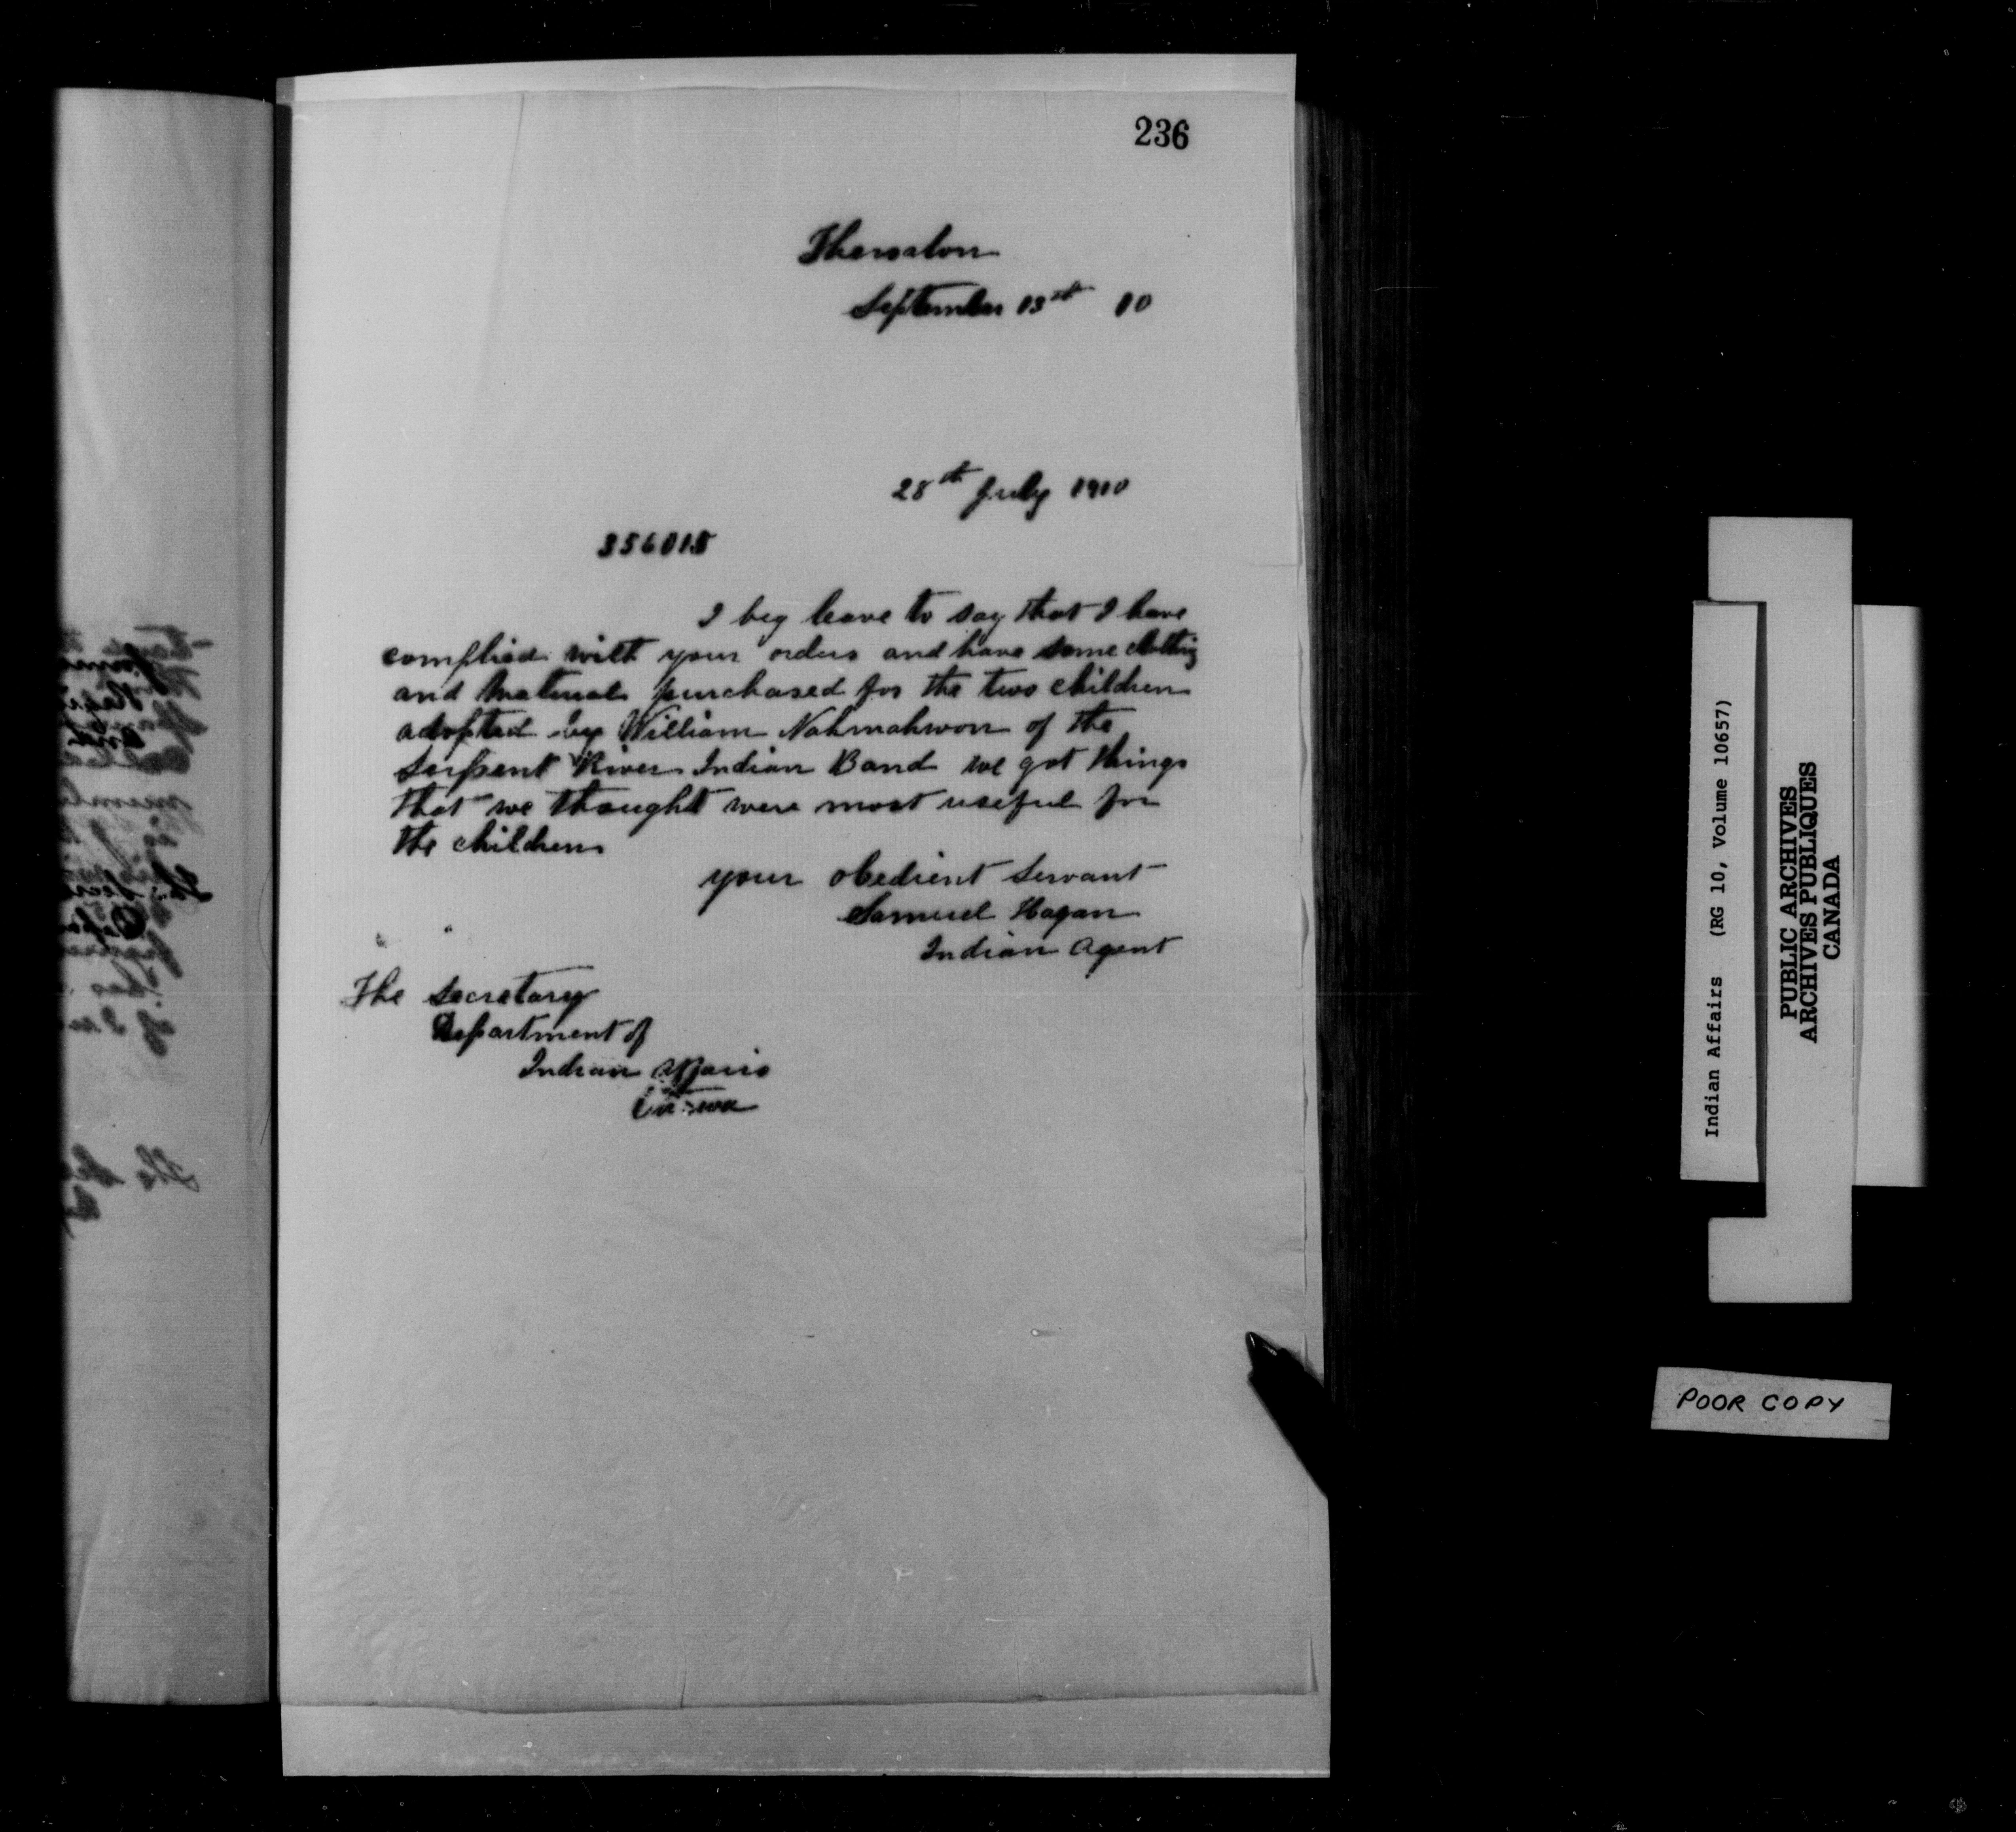 236
Thessalon
September 13th 10
28th July 1910
356015
I beg leave to say that I have
complied with your orders and have some clothing
and material purchased for the two children
adopted by William Nahmahwon of the
Serpent River Indian Band we got things
that we thought were most useful for
the children
your obedient servant
Samuel Hagan
Indian Agent
The Secretary
Department of
Indian Affairs
Ottawa
Indian Affairs (RG 10, Volume 10657)
PUBLIC ARCHIVES
ARCHIVES PUBLIQUES
CANADA
POOR COPY